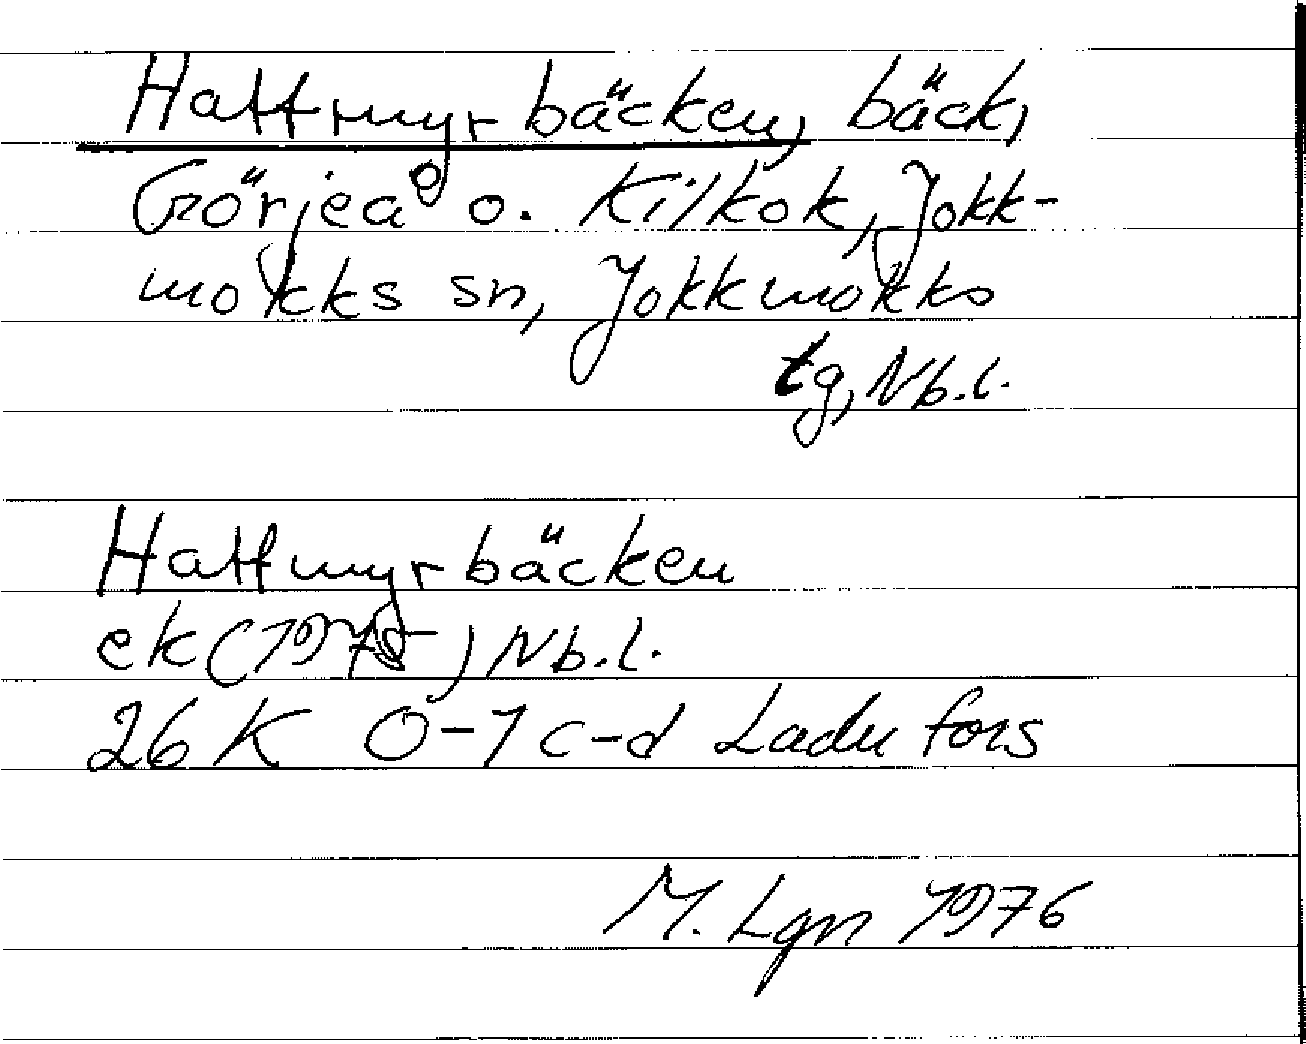 Hattmyrbäcken, bäck,
Görjeå o. Kilkok, Jokk-
mokks sn, Jokkmokks
tg, Nb.l.
Hattmyrbäcken
ek (1975) Nb.l.
26 K 0-1 c-d Ladufors
M. Lgn 1976